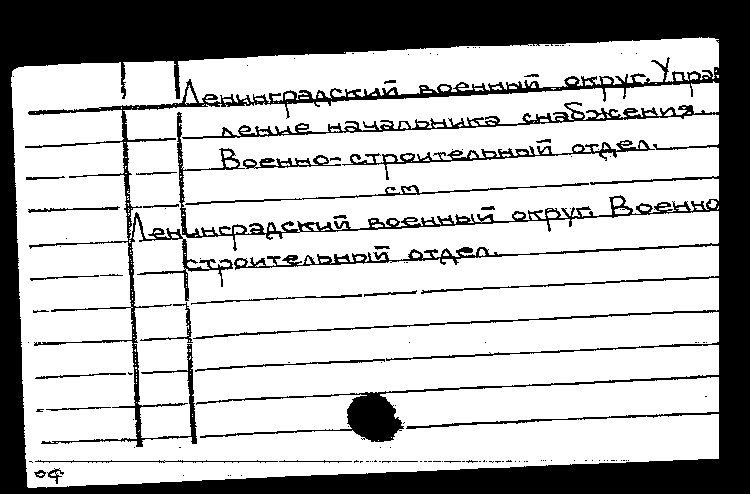 Ленинградский военный округ. Управ
ление начальника снабжения.
Военно-строительный отдел.
см
Ленинградский военный округ. Военно
строительный отдел.
оф